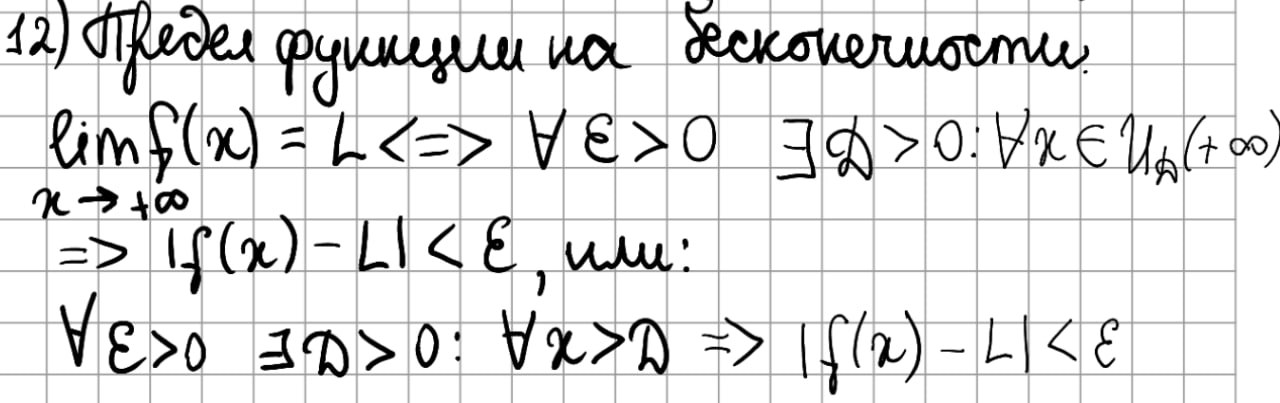 12) Предел функции на бесконечности.
lim f(x) = L <=> ∀ ε > 0 ∃ D > 0: ∀x ∈ U_D(+∞)
x → +∞
=> |f(x) - L| < ε, или:
∀ ε>0 ∃ D > 0: ∀x>D => |f(x) - L| < ε